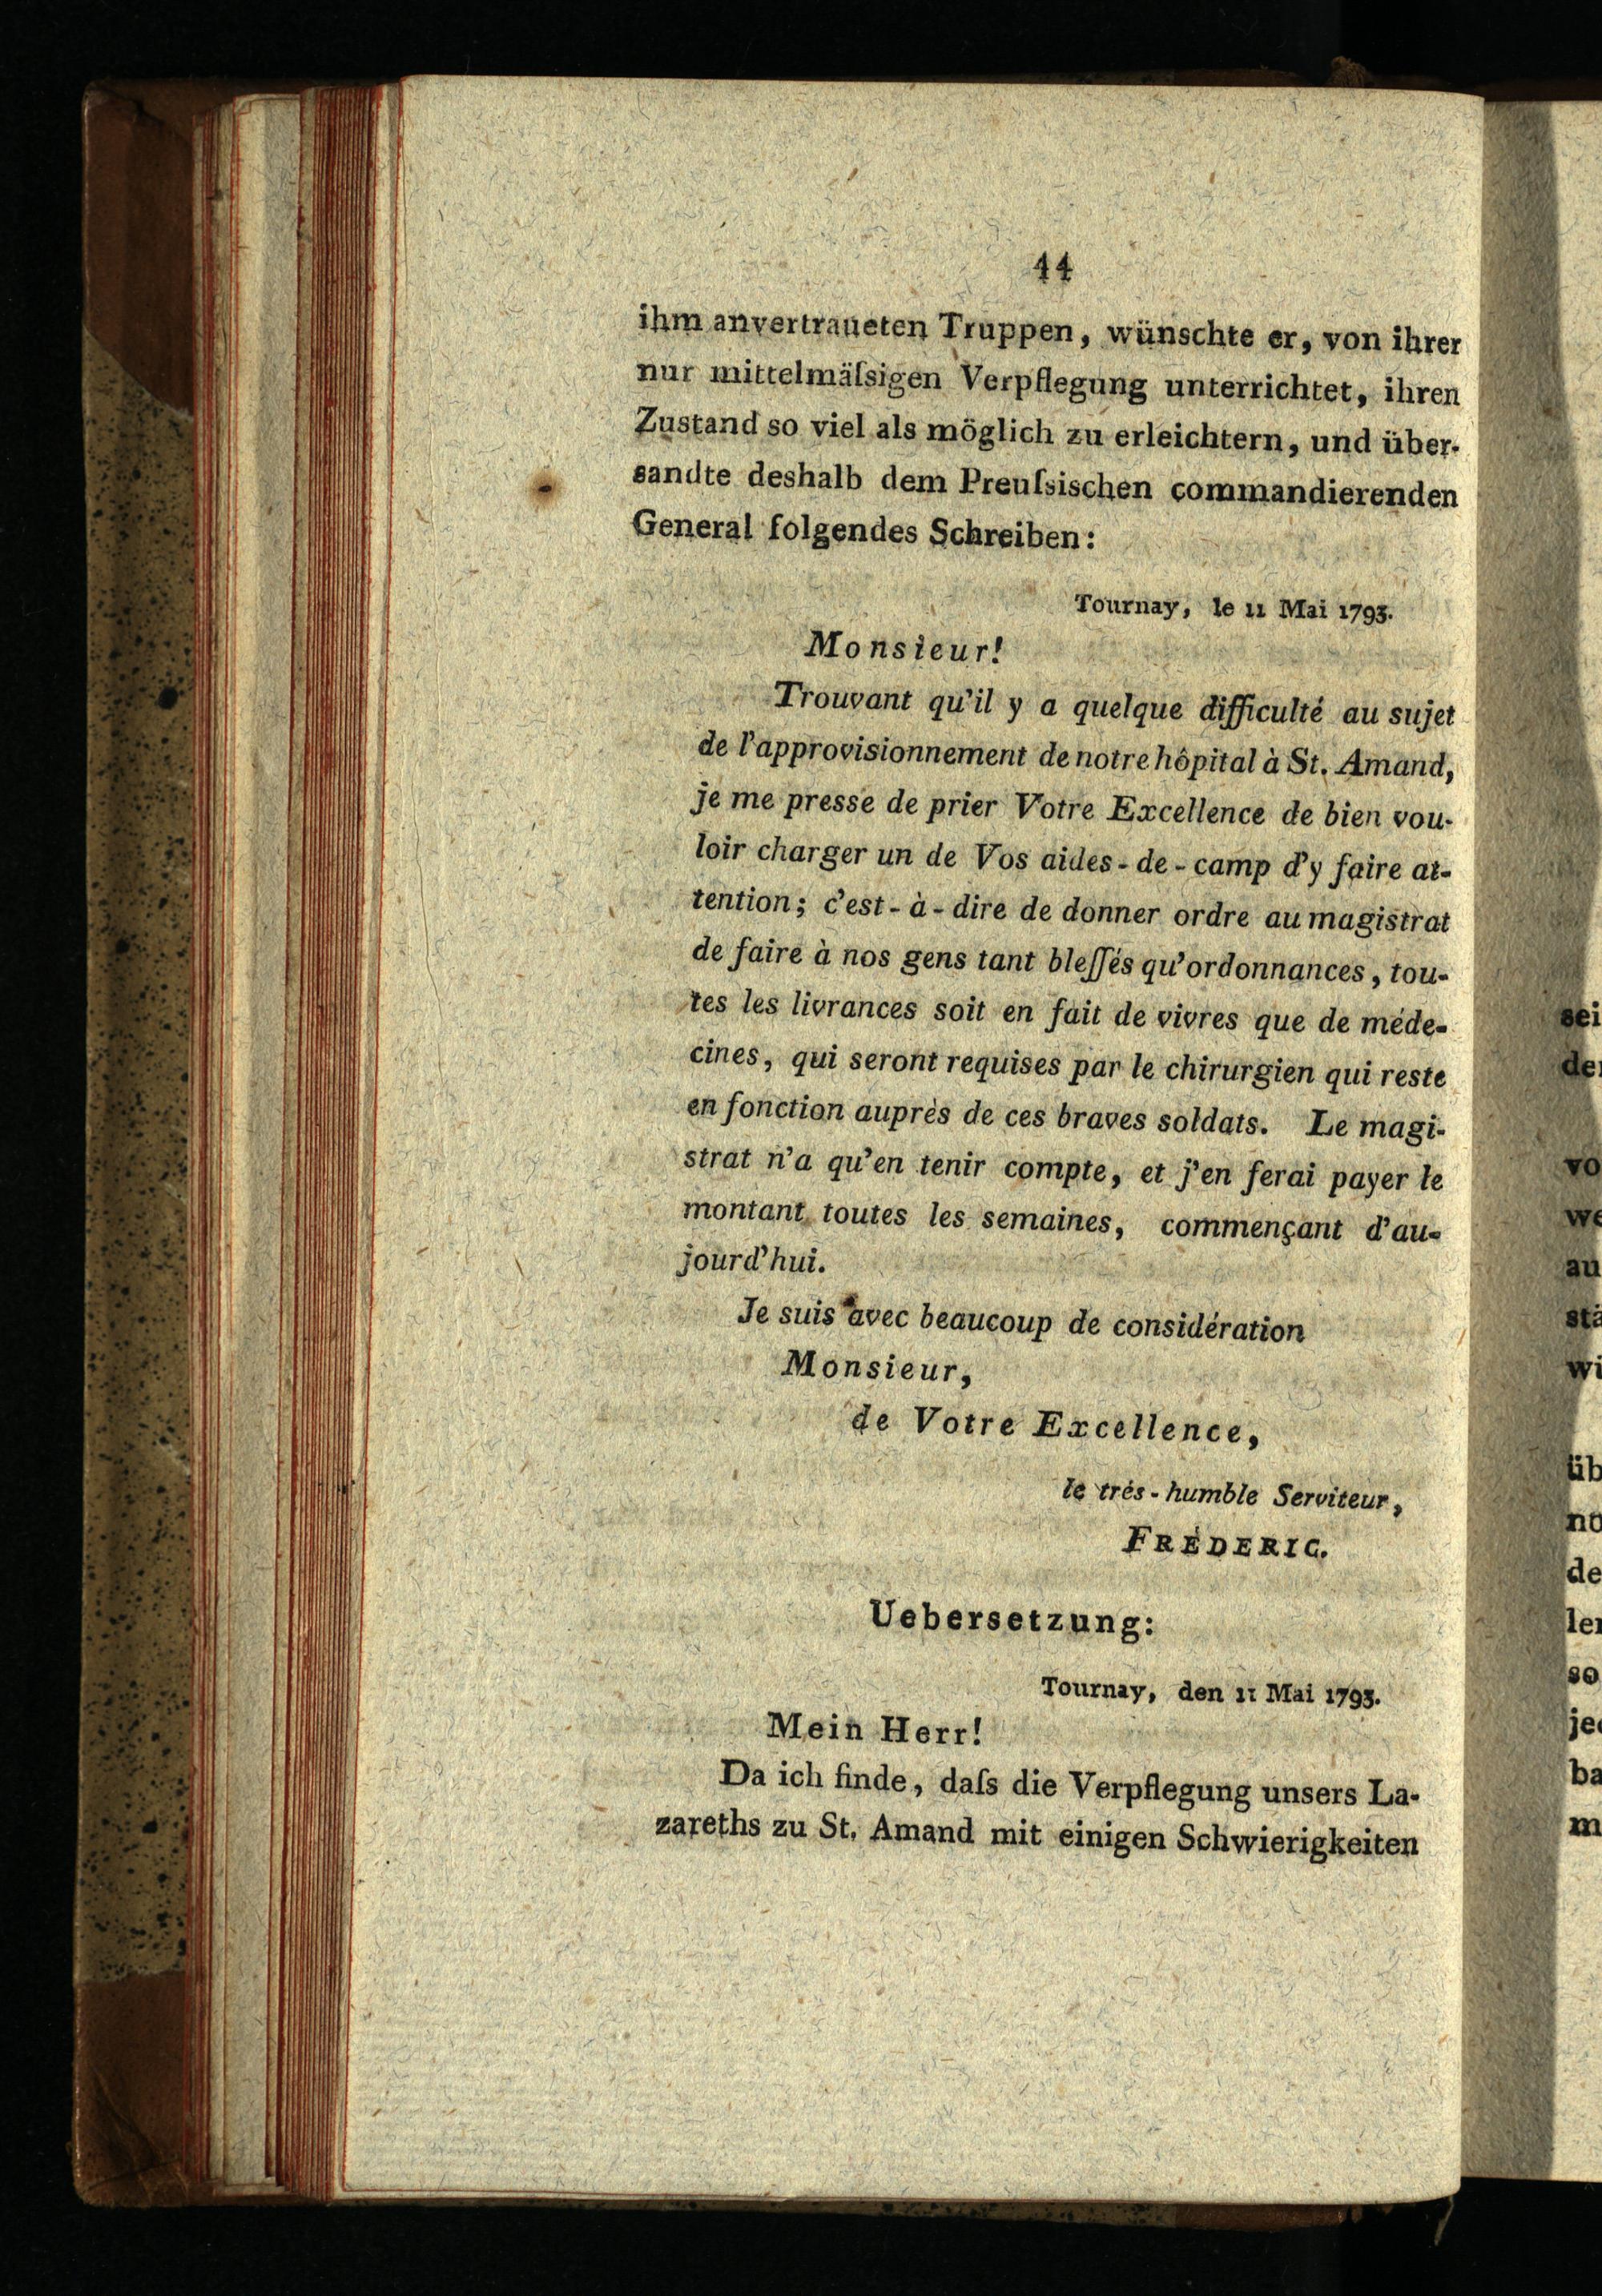 44
ihm anvertraueten Truppen, wünschte er, von ihrer
nur mittelmäſsigen Verpflegung unterrichtet, ihren
Zustand so viel als möglich zu erleichtern, und über-
sandte deshalb dem Preuſsischen commandierenden
General folgendes Schreiben:
Tournay, le 11 Mai 1793.
Monsieur!
Trouvant qu'il y a quelque difficulté au sujet
de l'approvisionnement de notre hôpital à St. Amand,
je me presse de prier Votre Excellence de bien vou-
loir charger un de Vos aides-de-camp d'y faire at-
tention; c'est-à-dire de donner ordre au magistrat
de faire à nos gens tant bleſſés qu'ordonnances, tou-
tes les livrances soit en fait de vivres que de méde-
cines, qui seront requises par le chirurgien qui reste
en fonction auprès de ces braves soldats. Le magi-
strat n'a qu'en tenir compte, et j'en ferai payer le
montant toutes les semaines, commençant d'au-
jourd'hui.
Je suis avec beaucoup de considération
Monsieur,
de Votre Excellence,
le trés-humble Serviteur,
FRÉDERIC.
Uebersetzung:
Tournay, den 11 Mai 1793.
Mein Herr!
Da ich finde, daſs die Verpflegung unsers La-
zareths zu St. Amand mit einigen Schwierigkeiten